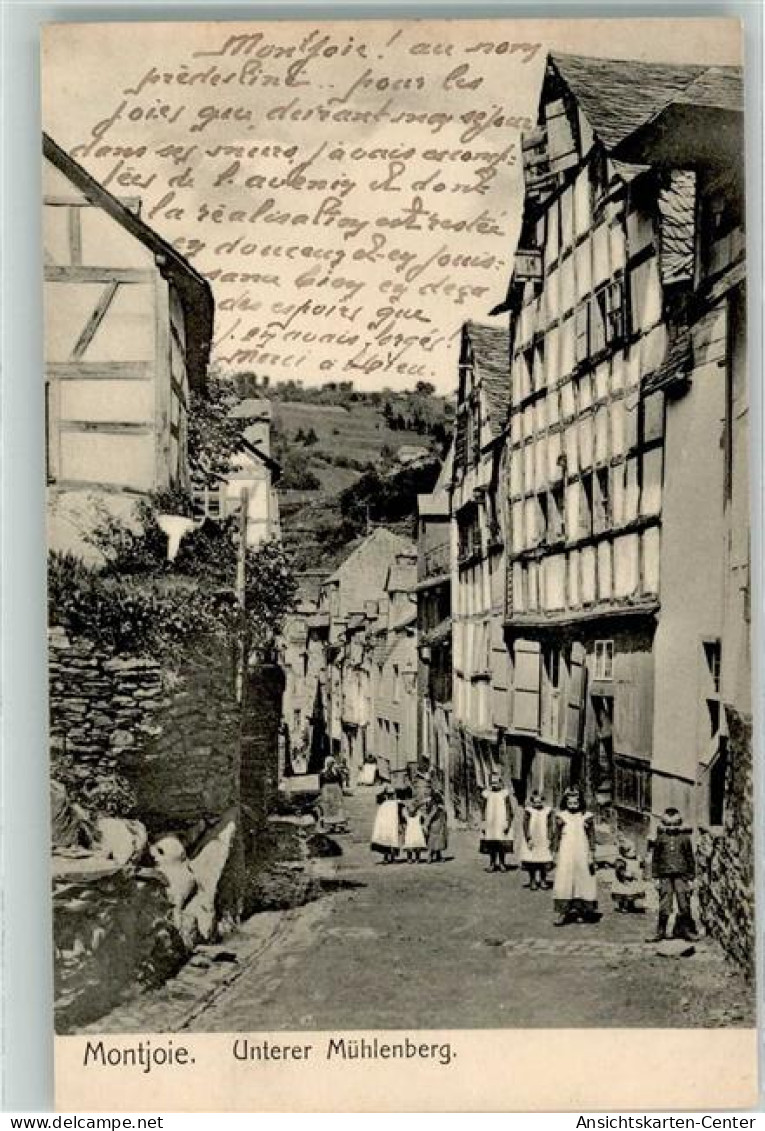 Montjoie! au nom
prédestiné.. pour les
joies que durant mon séjour
dans ses murs j'avais escomp-
tées de l'avenir et dont
la réalisation est restée
en douceur et en jouis-
sance bien en deçà
des espoirs que
j'en avais forgés!
Merci à Dieu.
Montjoie. Unterer Mühlenberg.
Ansichtskarten-Center